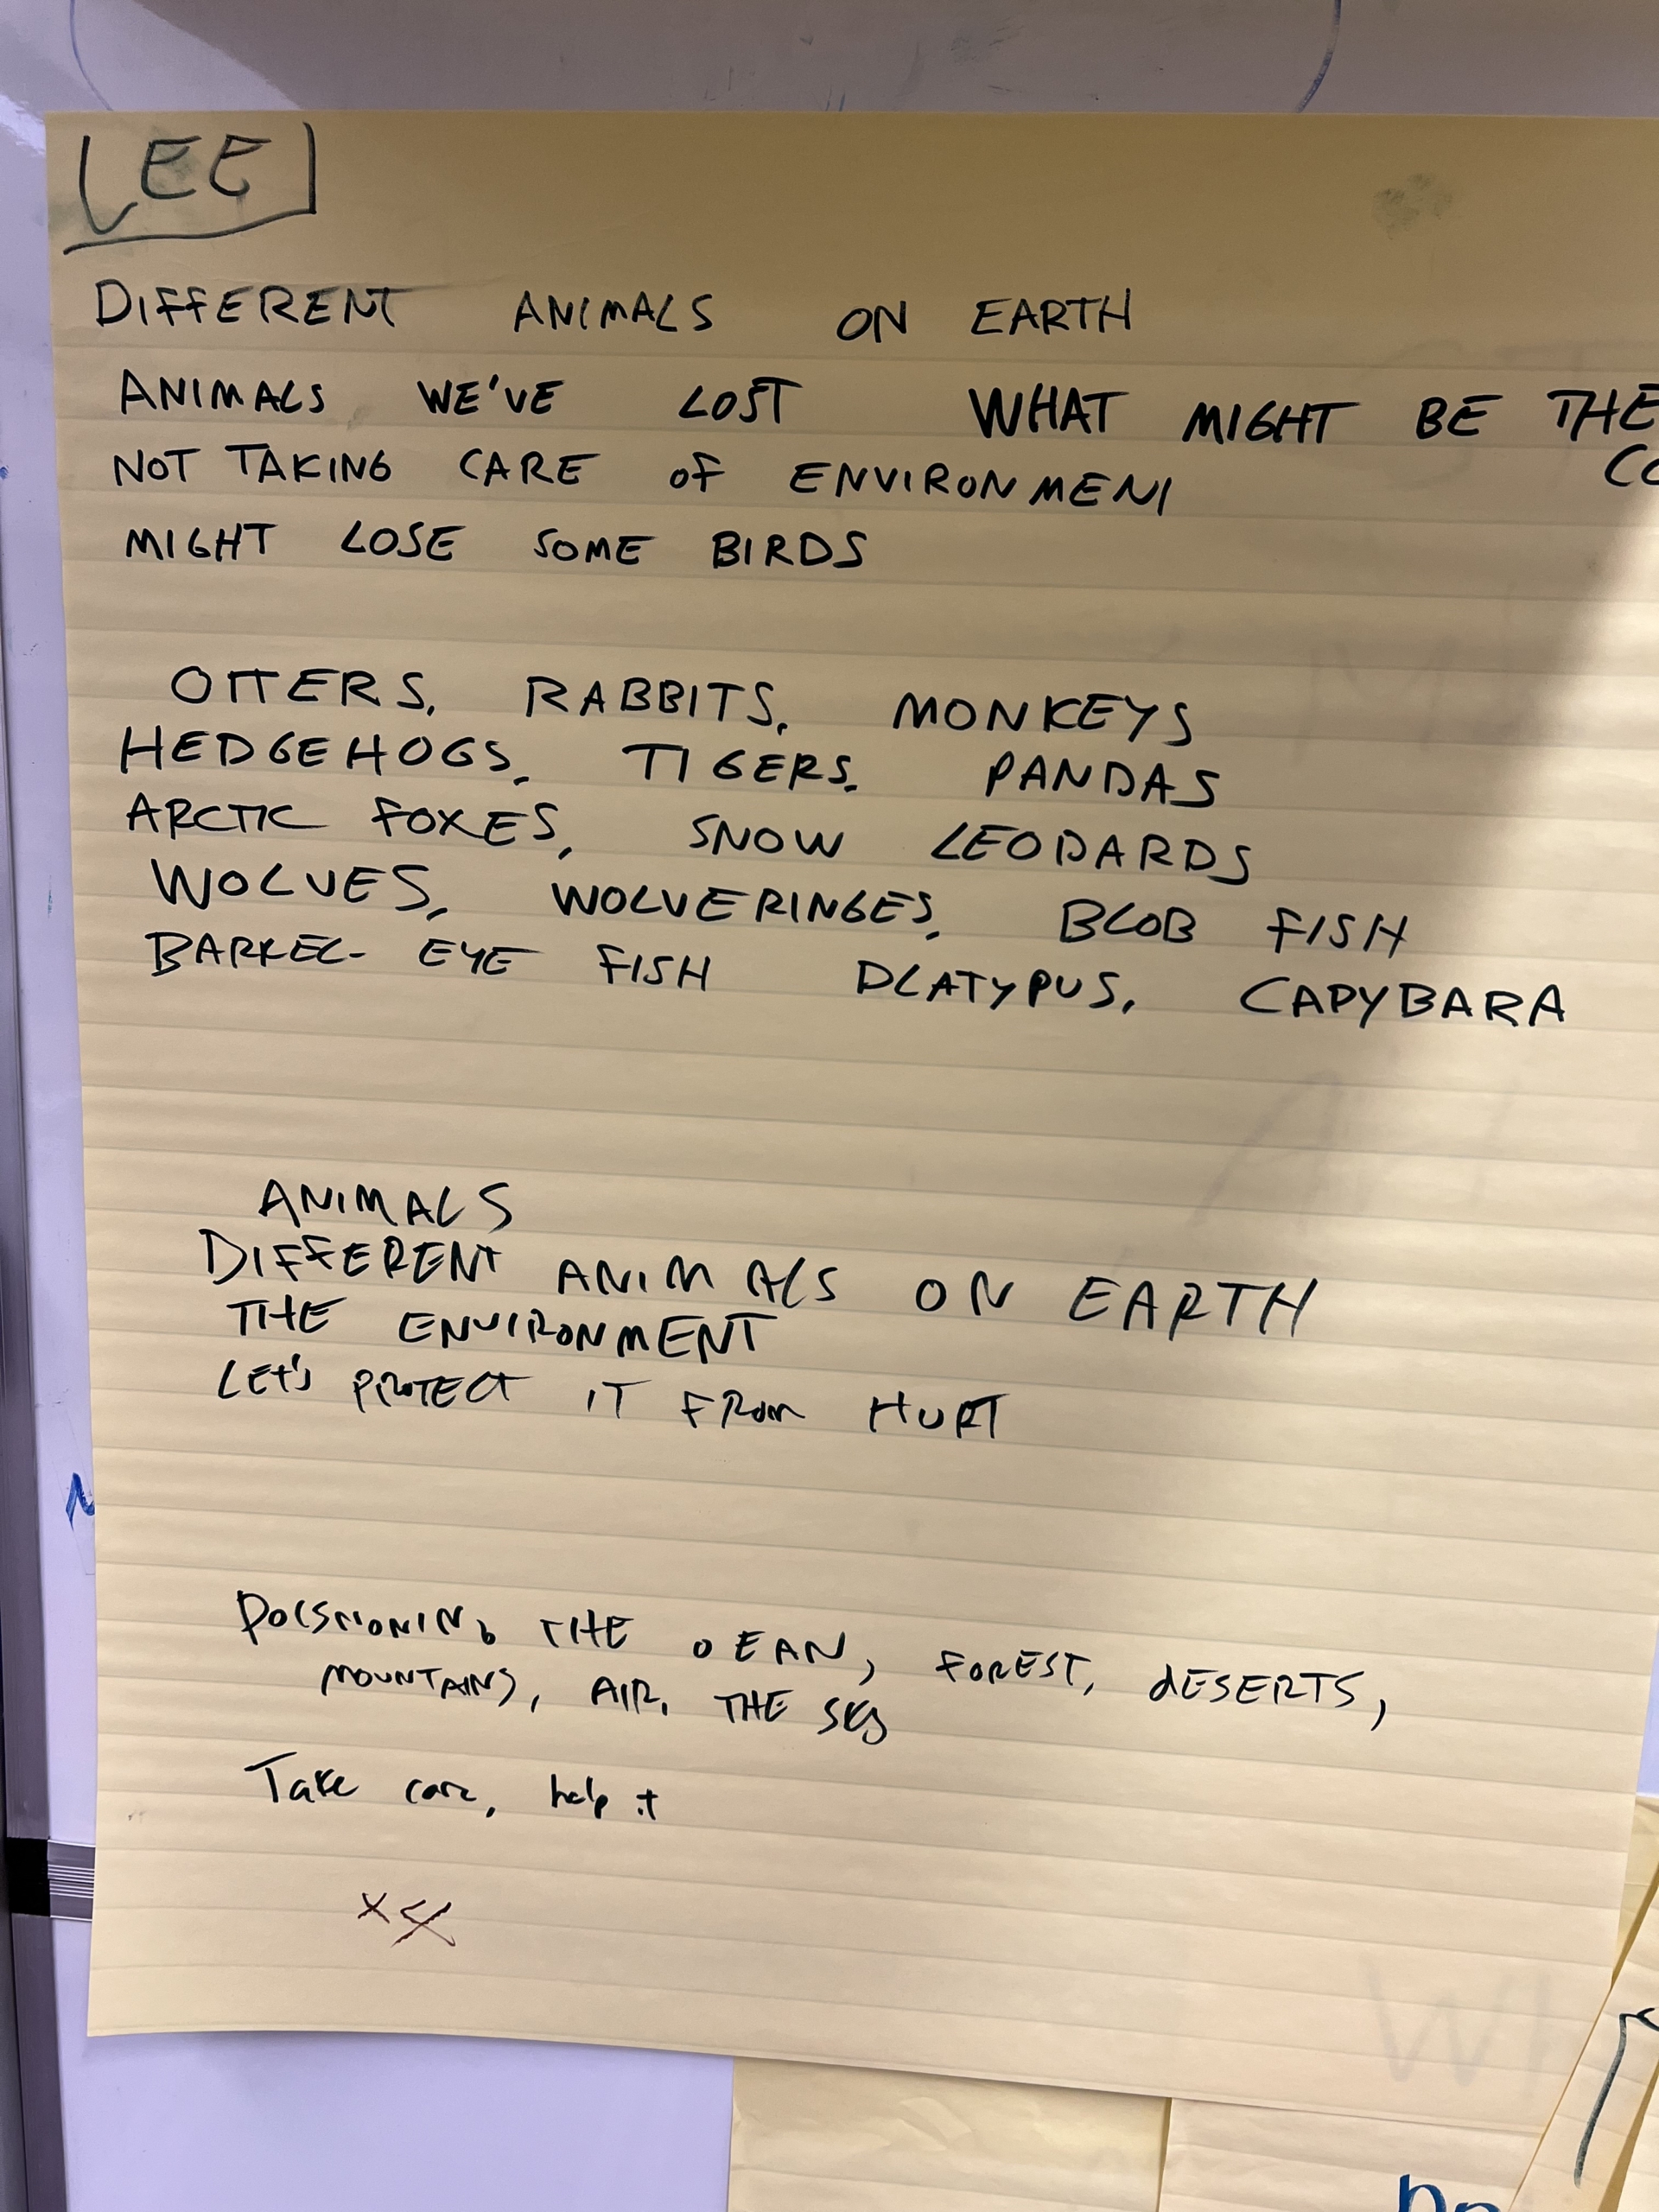 LEE
DIFFERENT ANIMALS ON EARTH
ANIMALS WE'VE LOST WHAT MIGHT BE THE
NOT TAKING CARE OF ENVIRONMENT
MIGHT LOSE SOME BIRDS
OTTERS, RABBITS, MONKEYS
HEDGEHOGS, TIGERS, PANDAS
ARCTIC FOXES, SNOW LEOPARDS
WOLVES, WOLVERINGES, BLOB FISH
BARREL-EYE FISH PLATYPUS, CAPYBARA
ANIMALS
DIFFERENT ANIMALS ON EARTH
THE ENVIRONMENT
LET'S PROTECT IT FROM HURT
THE OEAN, FOREST, DESERTS,
MOUNTAINS, AIR, THE SKY
Take care, help it